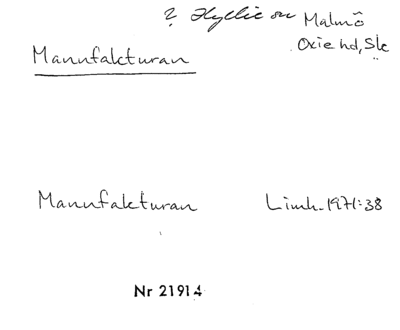 ? Hyllie sn Malmö
Oxie hd, Sk
Manufakturan
Manufakturan Limh. 1971:38
Nr 21914